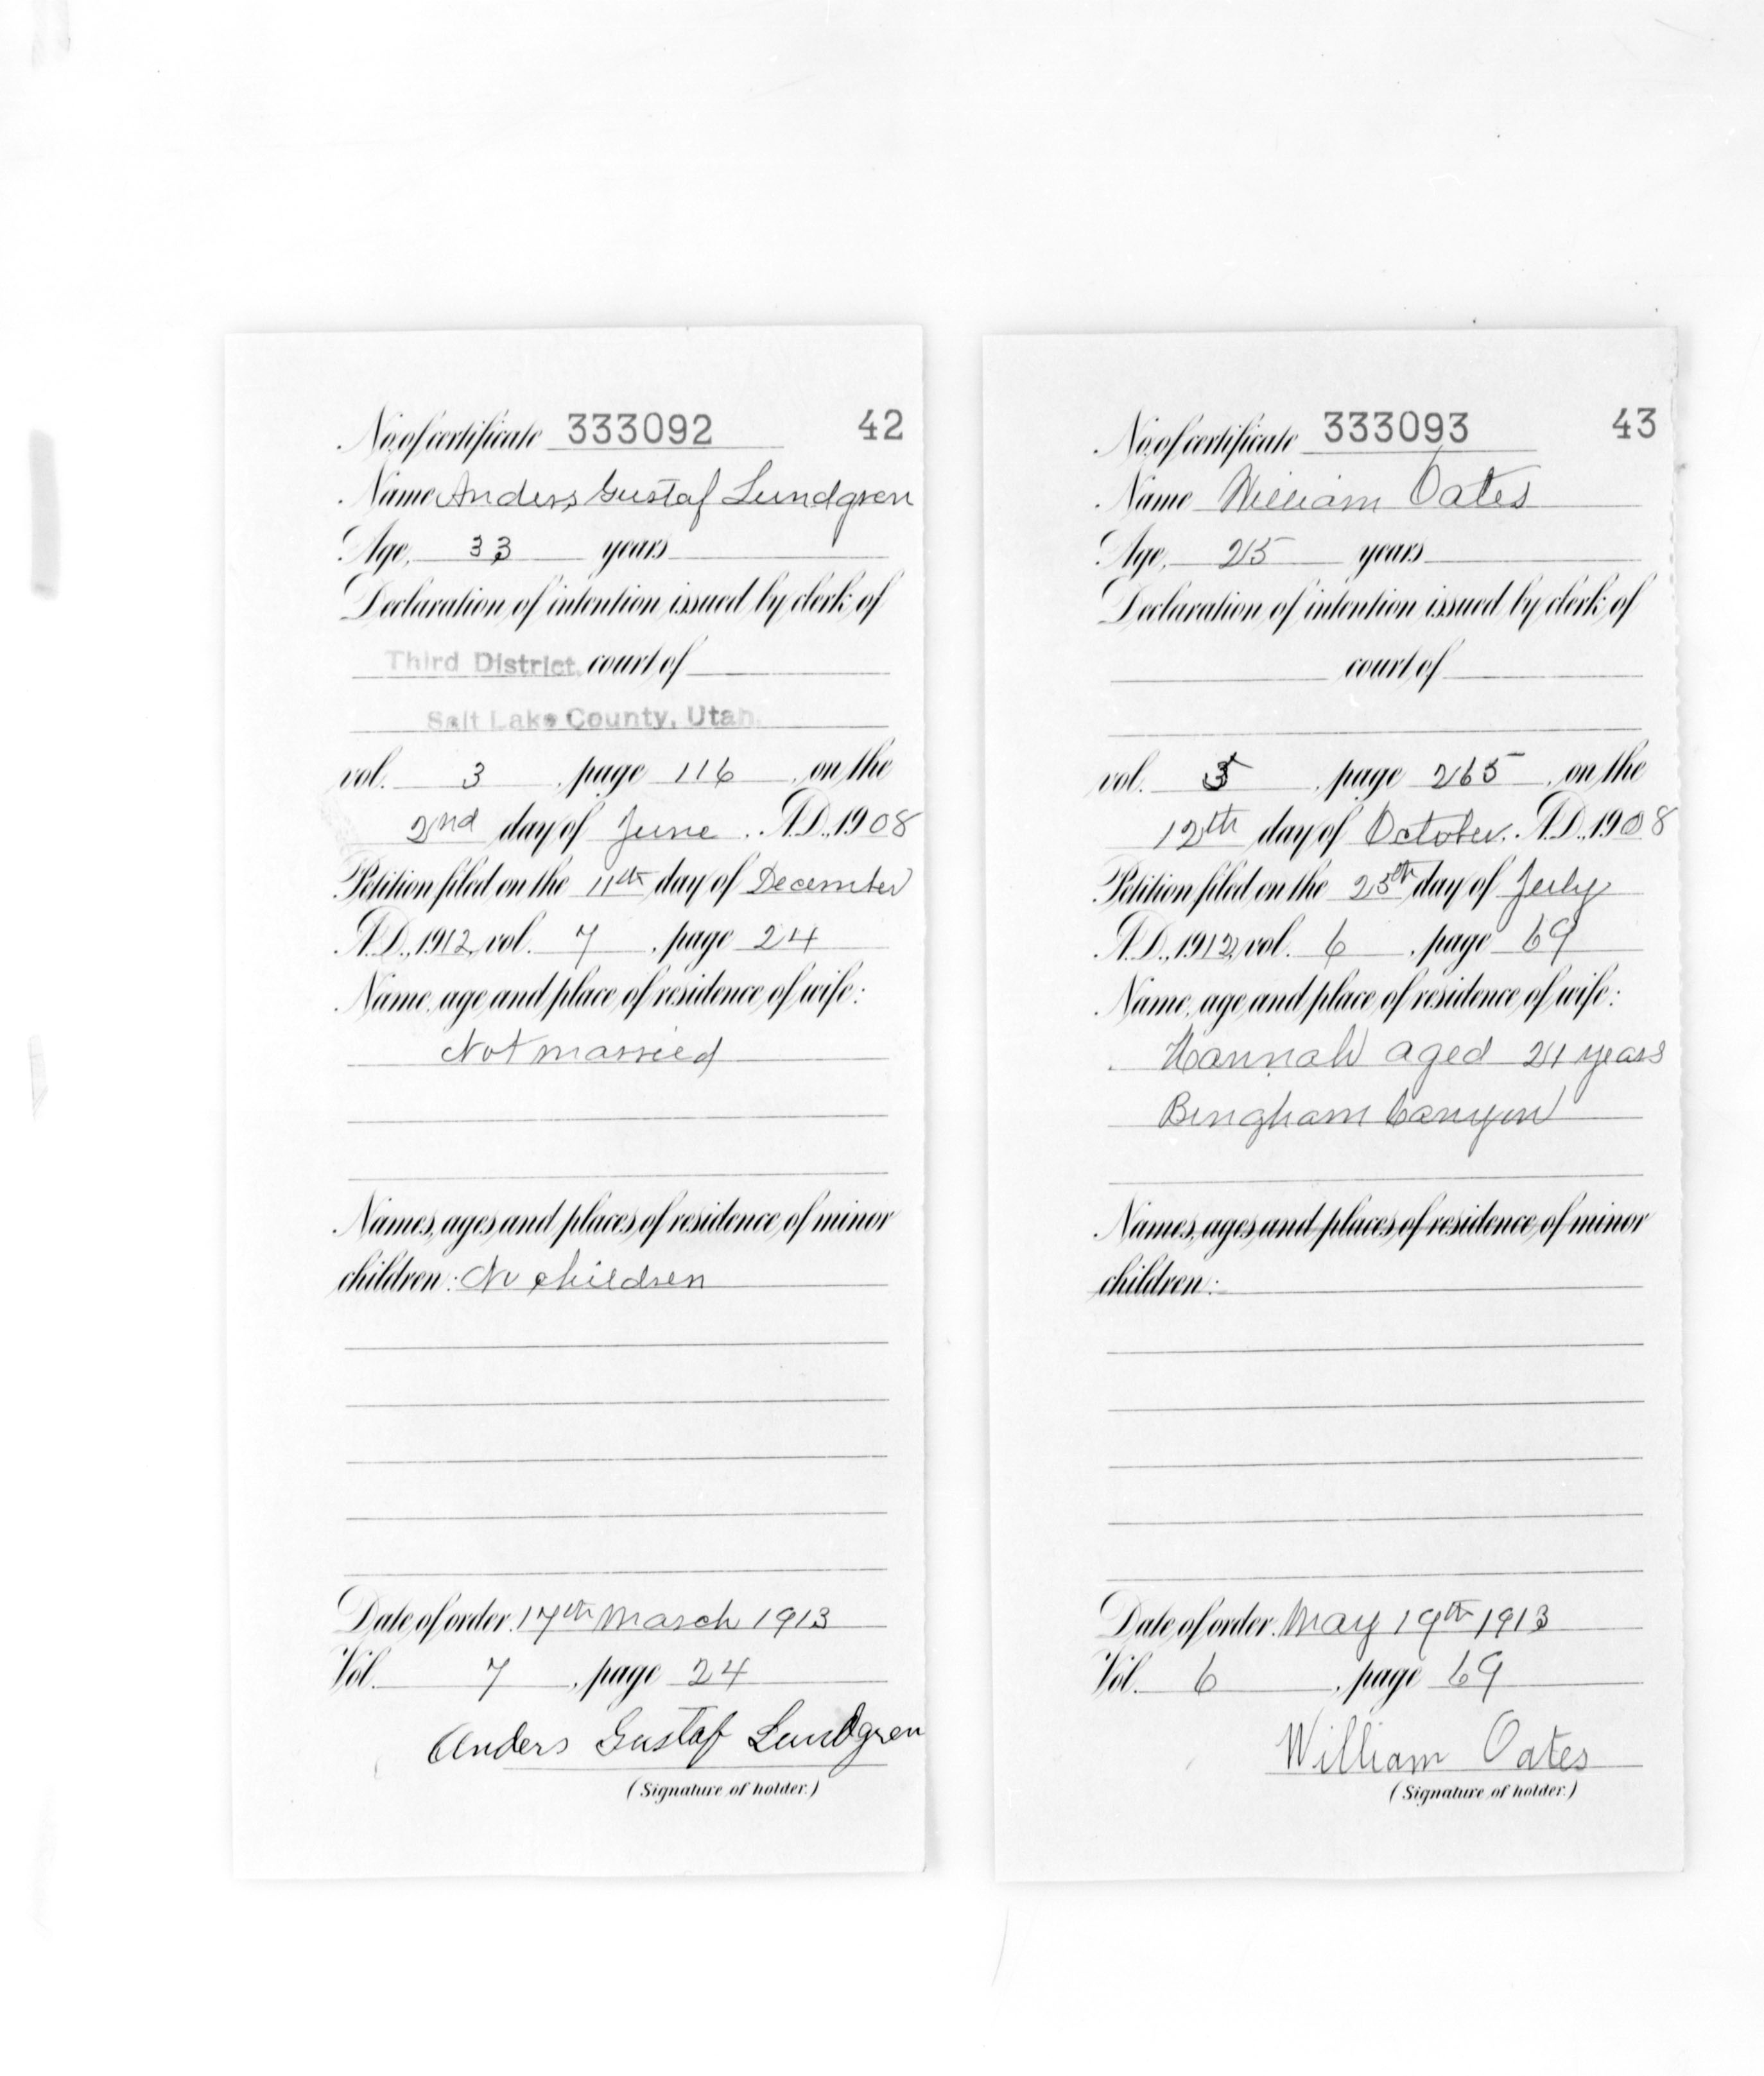 No. of certificate 333092 42
Name Anders Gustaf Lundgren
Age, 33 years
Declaration of intention issued by clerk of
Third District court of
Salt Lake County, Utah.
vol. 3, page 116, on the
2nd day of June, A.D., 1908
Petition filed on the 11th day of December
A.D., 1912, vol. 7, page 24
Name, age and place of residence of wife:
Not married
Names, ages and places of residence of minor
children: No children
Date of order 17th March 1913
Vol. 7, page 24
Anders Gustaf Lundgren
(Signature of holder.)
No. of certificate 333093 43
Name William Oates
Age, 25 years
Declaration of intention issued by clerk of
court of
vol. page 265, on the
12th day of October, A.D., 1908
Petition filed on the 25th day of July
A.D., 1912, vol. 6, page 69
Name, age and place of residence of wife:
Hannah aged years
Bingham Canyon
Names, ages and places of residence of minor
children:
Date of order May 19th 1913
Vol. 6, page 69
William Oates
(Signature of holder.)